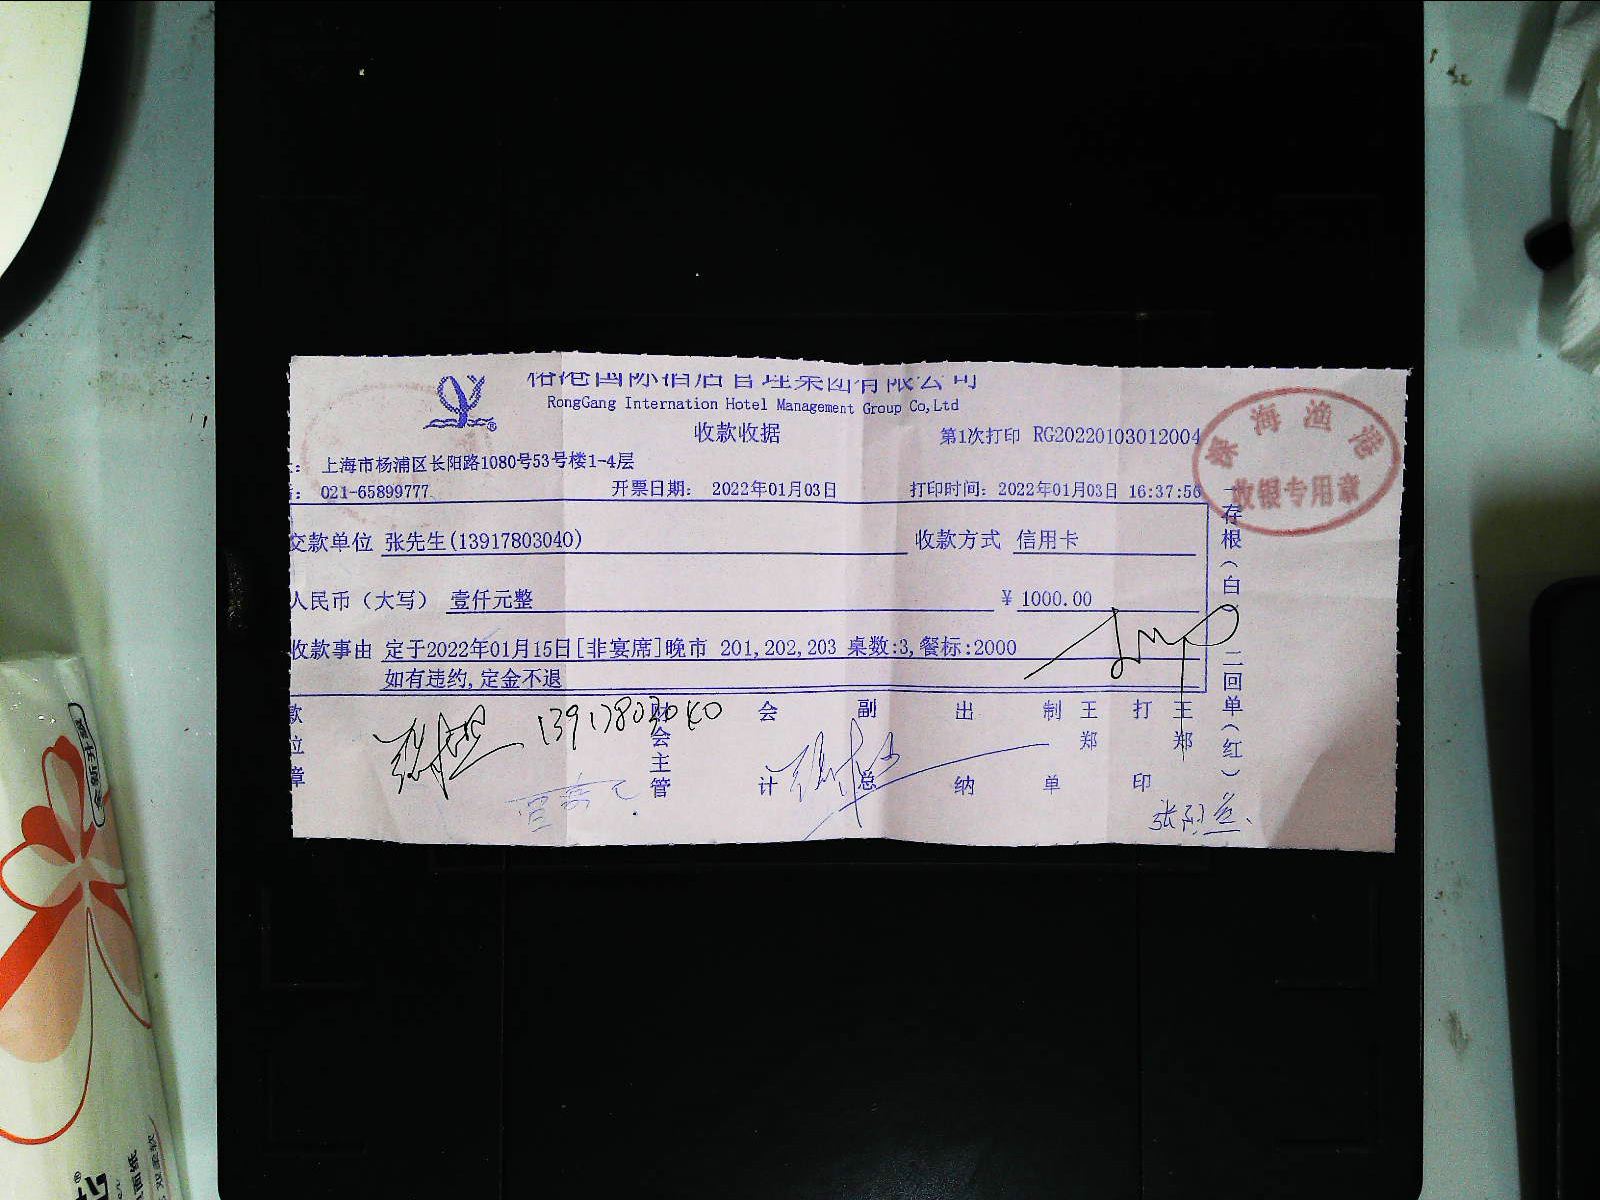 榕港国际酒店管理集团有限公司
RongGang Internation Hotel Management Group Co,Ltd
收款收据
第1次打印 RG20220103012004
: 上海市杨浦区长阳路1080号53号楼1-4层
: 021-65899777
开票日期: 2022年01月03日
打印时间: 2022年01月03日 16:37:56
海渔港
收银专用章
交款单位 张先生(13917803040)
收款方式 信用卡
人民币（大写） 壹仟元整
¥ 1000.00
收款事由 定于2022年01月15日[非宴席]晚市 201,202,203 桌数:3,餐标:2000
如有违约,定金不退
一存根（白）二回单（红）
款位章
13917803040
财会主管
会计
副总
出纳
制单
王郑
打印
王郑